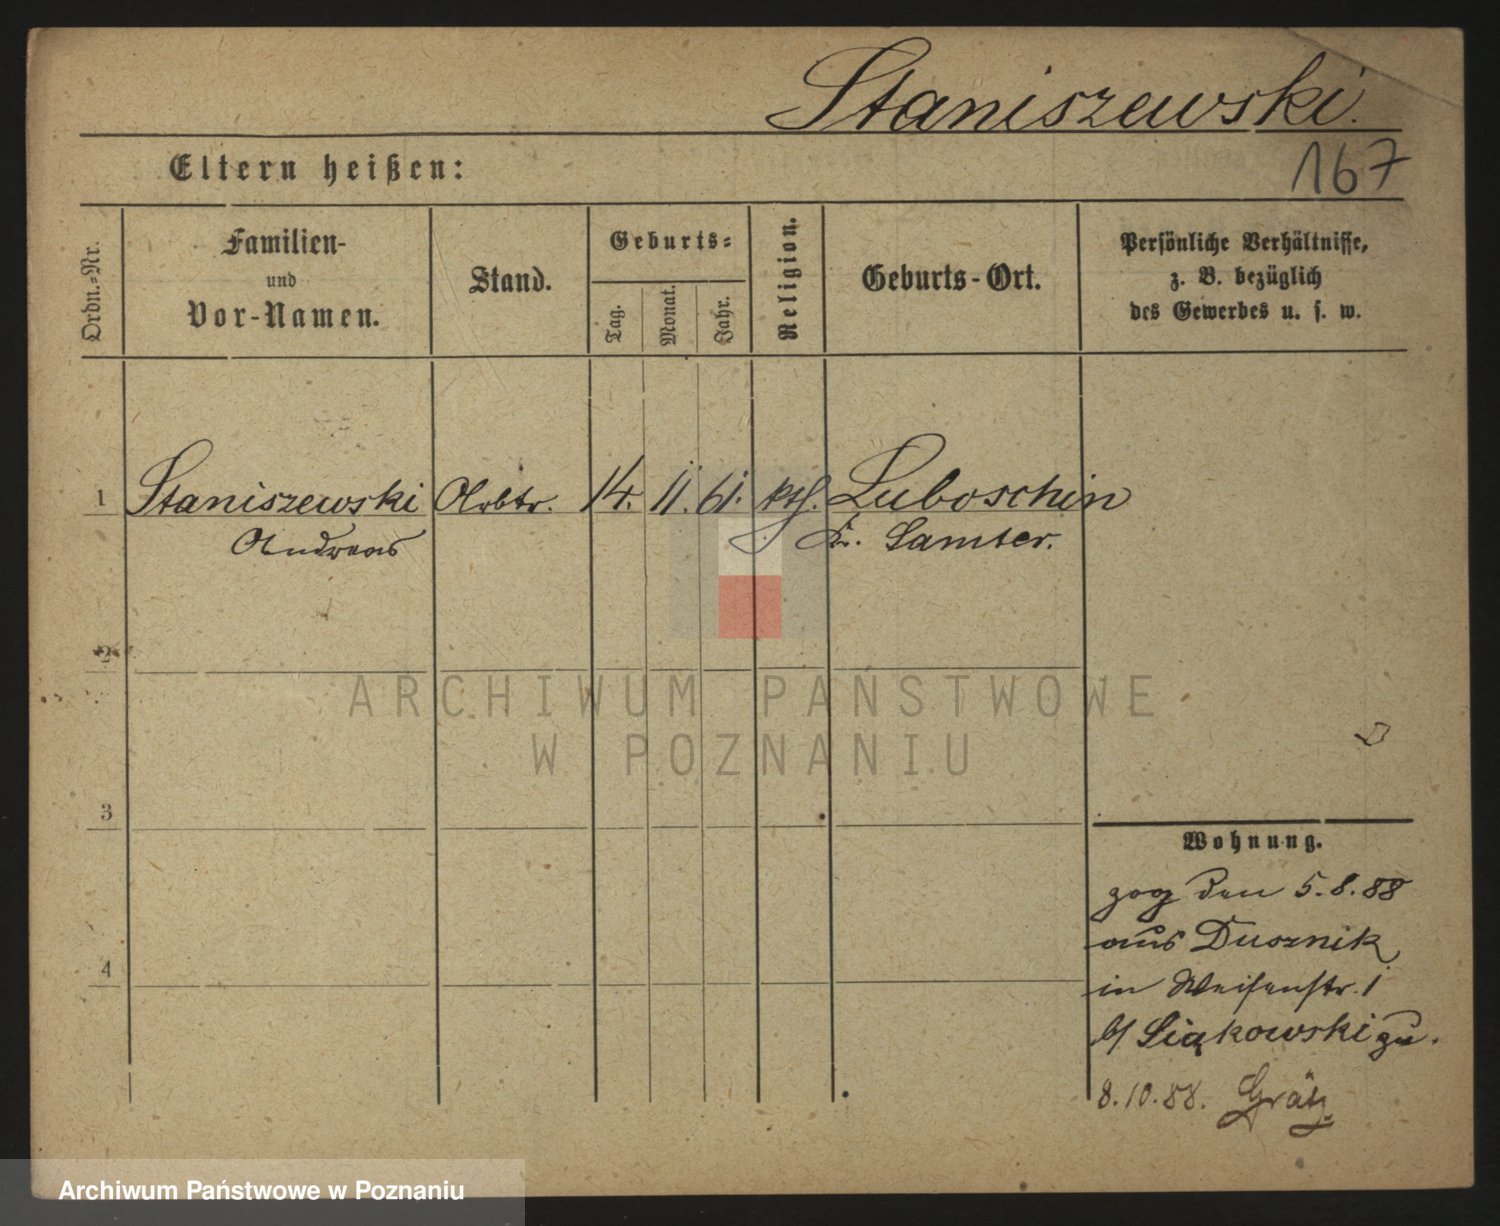 Staniszewski.
Eltern heißen:
167
Ordn.-Nr.
Familien-
und
Vor-Namen.
Stand.
Geburts-
Tag.
Monat.
Jahr.
Religion.
Geburts-Ort.
Persönliche Verhältnisse,
z. B. bezüglich
des Gewerbes u. s. w.
1 Staniszewski Arbtr. 14. 11. 61. kth. Luboschin
Andreas Kr. Samter.
2
ARCHIWUM PAŃSTWOWE
W POZNANIU
3
Wohnung.
zog den 5.8.88
aus Dusznik
4
in Weisenstr. 1
b/ Siąkowski zu.
8.10.88. Grätz
Archiwum Państwowe w Poznaniu